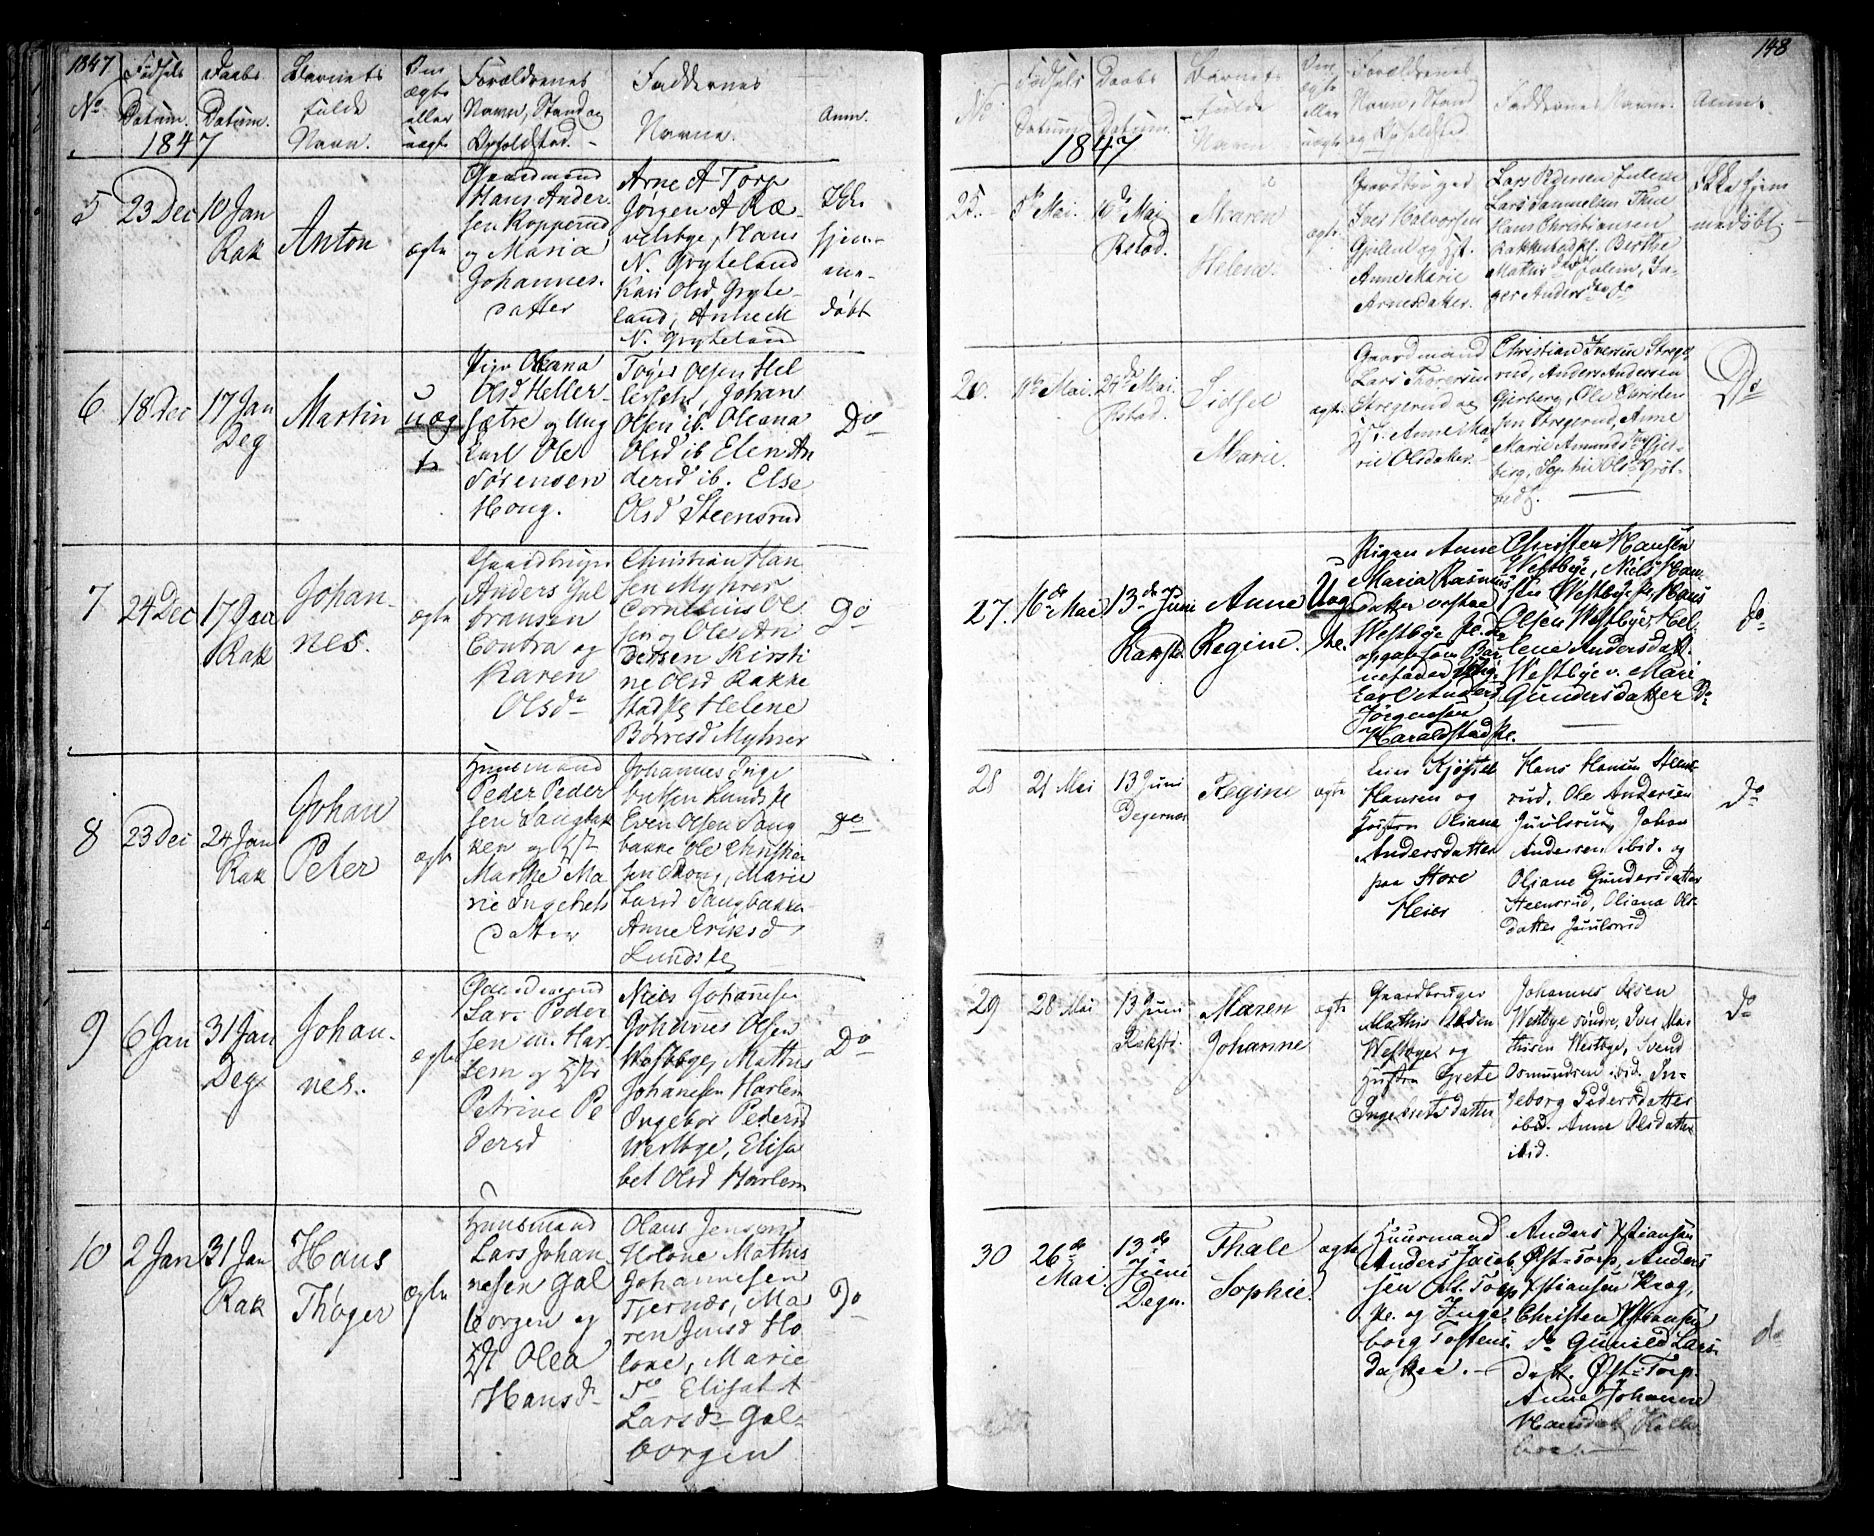 1847
No
Fødsels
Datum.
Daabs
Datum.
1847
Barnets
fulde
Navn.
Om
ægte
eller
uægte
Forældrenes
Navn, Stand og
Opholdsted.
Faddernes
Navne.
Anm.
5
23 Dec
10 Jan
Rak
Anton
ægte
Gaardmand
Hans Ander-
sen Kopperud
og Maria
Johannes-
datter
Arne A Torp
Jørgen A Ræ-
velsbye, Hans
N. Gryteland
Kari Olsd Gryte-
land, Anne M
N. Gryteland
Ikke
hjem-
me-
døbt
6
18 Dec
17 Jan
Deg
Martin
uæg
te
Pige Oleana
Olsd Heller-
sætre og Ung
karl Ole
Sørensen
Houg.
Olsen Hel
Johan
Olsen ib. Oleana
Olsd ib Elen An
dersd ib. Else
Olsd Steensrud
Do
7
24 Dec
17 Jan
Rak
Johan-
nes.
ægte
Gaardbruger
Anders Gul
bransen
og
Karen
Olsd
Christian Han
sen Myhrer
Cornelius Ol
sen og Ole An
dersen Kirsti
ne Olsd Rakke
stad Helene
Børresd Myhrer
Do
8
23 Dec
24 Jan
Rak
Johan
Peter
ægte
Huusmand
Peder Peder
sen Langbak
ken og Hst
Marthe Ma
rie Ingebrets
datter
Johannes Inge
bretsen Lunds
Even Olsen Lang
bakke Ole Christia
sen Marie
Larsd Langbakke
Anne Eriksd
Lunds
Do
9
6 Jan
31 Jan
Deg
Johan-
nes.
ægte
Gaardmand
Lars Peder
sen m. Har
lem og Hstr
Petrine Pe
dersd
Niels Johannesen
Johannes Olsen
Westbye, Mathis
Johannesen Harlem
Ingebor Pedersd
Westbye, Elisa
bet Olsd Harlem
Do
10
2 Jan
31 Jan
Rak
Hans
Thøger
ægte
Huusmand
Lars Johan
nesen Gal
borgen og
Hst Olea
Hansd
Olaus Jensen
Holone Mathis
Johannesen
Tjernæs, Ma
ren Jensd Ho
lone, Marie
Do Elisabt
Larsd Gal-
borgen
Do
148
No.
Fødsels
Datum
Daabs
Datum.
1847
Barnets
fulde
Navn
Om
ægte
eller
uægte
Forældrenes
Navn, Stand
og Opholdsted.
Faddernes Navne.
Anm.
25.
8de Mai.
16de Mai
Rstad.
Maren
Helene.
ægte
Gaardbruger
Iver Halvorsen
og Hst.
Anne Marie
Arnesdatter.
Lars Pedersen
Lars Samuelsen
Hans Christiansen
Birthe
Mathis
Anders
Ikke hjem
medøbt
26.
Mai.
24de Mai.
Rstad.
Sidsel
Marie.
ægte.
Gaardmand
Lars Thoresen
Stregerud og
Hst. Anne Ma
rie Olsdatter.
Christian Iversen Strege
rud, Anders Andersen
Gjerberg, Ole Christen
sen Stregerud, Anne
Marie Amunds
berg, Sophie Olsd
Do
27.
16de Mai
13de Juni
Rakstd.
Anne
Regine.
Uæg
te.
Pigen Anne
Maria Rasmus
datter østre
Westbye
opgav som Bar
nefader Ung
karl Anders
Jørgensen
Haraldstad
Christen Hansen
Westbye, Niels Han-
sen Westbye Hans
Olsen Westbye Hel-
lene Andersdatt.
Westbye v. Mari
Gundersdatter Do
do
28
21 Mai
13 Juni
Degernæs
Regine
ægte
Hansen og
Hustru Oliana
Andersdatter
paa Store
Heier
Hans Hansen Steens
rud, Ole Andersen
Juulsrud, Johan
Andersen ibid. og
Oliane Gundersdatter
Steensrud, Oliana Ols
datter Juulsrud
do
29
28 Mai
13 Juni
Rakst.
Maren
Johanne
ægte
Gaardbruger
Mathis Olsen
Westbye og
Hustru Grete
Ingebretsdatter
Johannes Olsen
Westbye søndre, Iver Mat
thisen Westbye, Svend
Osmundsen ibid. In-
geborg Pedersdatter
ibid. Anne Olsdatter
ibid.
do
30
26de
Mai
13de
Juni
Degn.
Thale
Sophie.
ægte
Huusmand
Anders Jacob
sen Øst. Torp
og Inge-
borg Tostens.
datter.
Anders Xstiansen
Øst-Torp, Anders
Xstiansen Krog,
Christen Xstiansen
do Gunild Lars-
datt. Øst-Torp.
Anne Johanne
Hansdatt
do